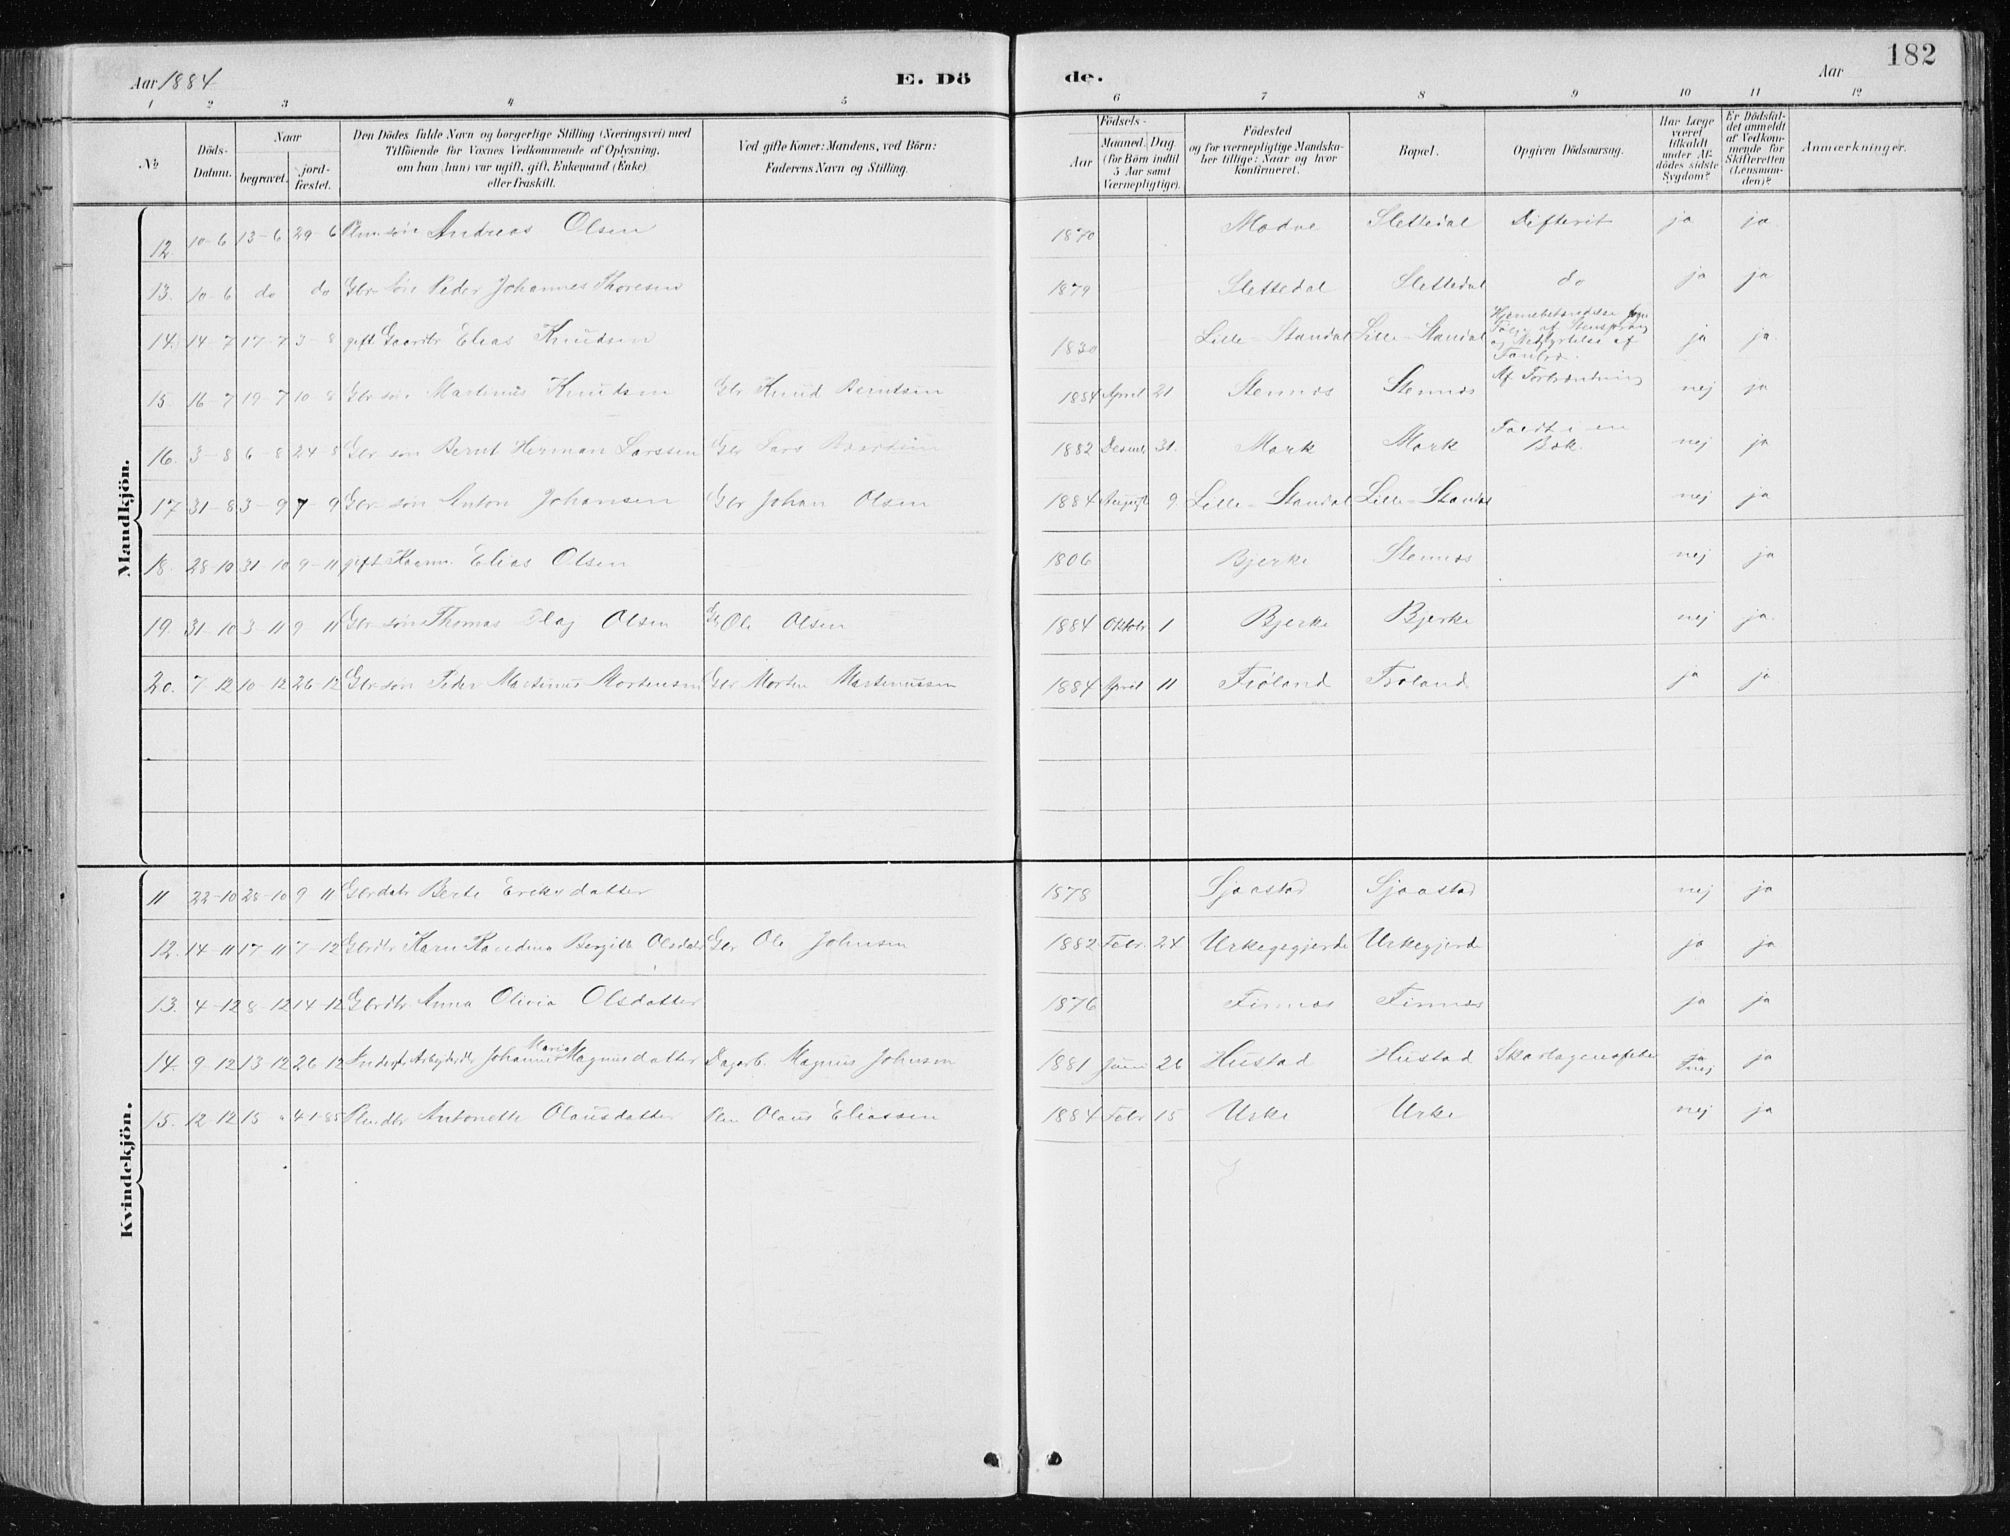 182
Aar 1884 E. Dö de. Aar
1 2 3 4 5 6 7 8 9 10 11 12
No
Döds-Datum.
Naar
begravet.
jord-fæstet.
Den Dödes fulde Navn og borgerlige Stilling (Næringsvei) med
Tilföiende for Voxnes Vedkommende af Oplysning,
om han (hun) var ugift, gift, Enkemand (Enke)
eller fraskilt.
Ved gifte Koner: Mandens, ved Börn:
Faderens Navn og Stilling.
Födsels-
Aar
Maaned. Dag
(for Börn indtil
5 Aar samt
Værnepligtige).
Födested
og for værnepligtige Mandska-
ber tillige: Naar og hvor
konfirmeret.
Bopæl.
Opgiven Dödsaarsag.
Har Læge
været
tilkaldt
under Af-
dödes sidste
Sygdom?
Er Dödsfal-
det anmeldt
af Vedkom-
mende for
Skifteretten
(Lensman-
den)?
Anmærkninger.
Mandkjön.
12. 10-6 13-6 29-6 søn Andreas Olsen 1870 Modve Slettedal Difterit ja ja
13. 10-6 do do Gbr søn Peder Johannes Thoresen 1879 Slettedal Slettedal do ja ja
14. 14-7 17-7 3-8 gift Gaardbr Elias Knudsen 1830 Lille-Standal Lille-Standal Hjernebetændelse af Stensprang og af ja ja
15. 16-7 19-7 10-8 Gbr søn Martinus Knudsen Gbr Knud Berntsen 1884 April 21 Stennes Stennes Af nej ja
16. 3-8 6-8 24-8 Gbr søn Bernt Herman Larssen Gbr Lars 1882 Decemb. 31. Mork Mork Faldt i en Bæk. nej ja
17. 31-8 3-9 7-9 Gbr søn Anton Johansen Gbr Johan Olsen 1884 August 9. Lille-Standal Lille-Standal nej ja
18. 28-10 31-10 9-11 gift Kaarm. Elias Olsen 1806 Bjerke Stennes nej ja
19. 31-10 3-11 9-11 Gbr søn Thomas Olaj Olsen Gbr Ole Olsen 1884 Oktobr. 1 Bjerke Bjerke nej ja
20. 7-12 10-12 26-12 Gbr søn Peder Martinus Mortensen Gbr Morten Martinussen 1884 April 11 Frøland Frøland ja ja
Kvindekjön.
11 22-10 28-10 9-11 Gbrdatr Berte Eriksdatter 1878 Sjaastad Sjaastad nej ja
12. 14-11 17-11 7-12 Gbrdtr Karn Kandina Bergitte Olsdatr Gbr Ole Johnsen 1882 Febr. 24 Urkegegjerde Urkegjerde ja ja
13. 4-12 8-12 14-12 Gbrdtr Anna Olivia Olsdatter 1876 Finnes Finnes ja ja
14. 9-12 13-12 26-12 Arbejderdtr Johanne Marie Magnusdatter Dagarb. Magnus Johnsen 1881 Juni 26 Hustad Hustad Skarlagensfeber ja
15. 12-12 15 " 4-1-85 Antonette Olausdatter Olaus Eliassen 1884 Febr 15 Urke Urke nej ja